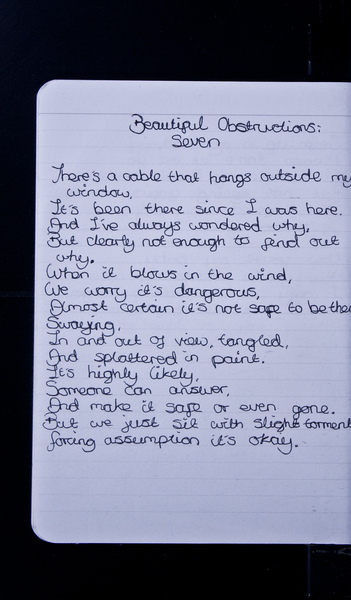 Beautiful Obstructions:
Seven
There's a cable that hangs outside my
window,
It's been there since I was here.
And I've always wondered why,
But clearly not enough to find out
why.
When it blows in the wind,
We worry it's dangerous,
Almost certain it's not safe to be
Swaying,
In and out of view, tangled,
And splattered in paint.
It's highly likely,
Someone can answer,
And make it safe or even gone.
But we just sit with slight torment
forcing assumption it's okay.